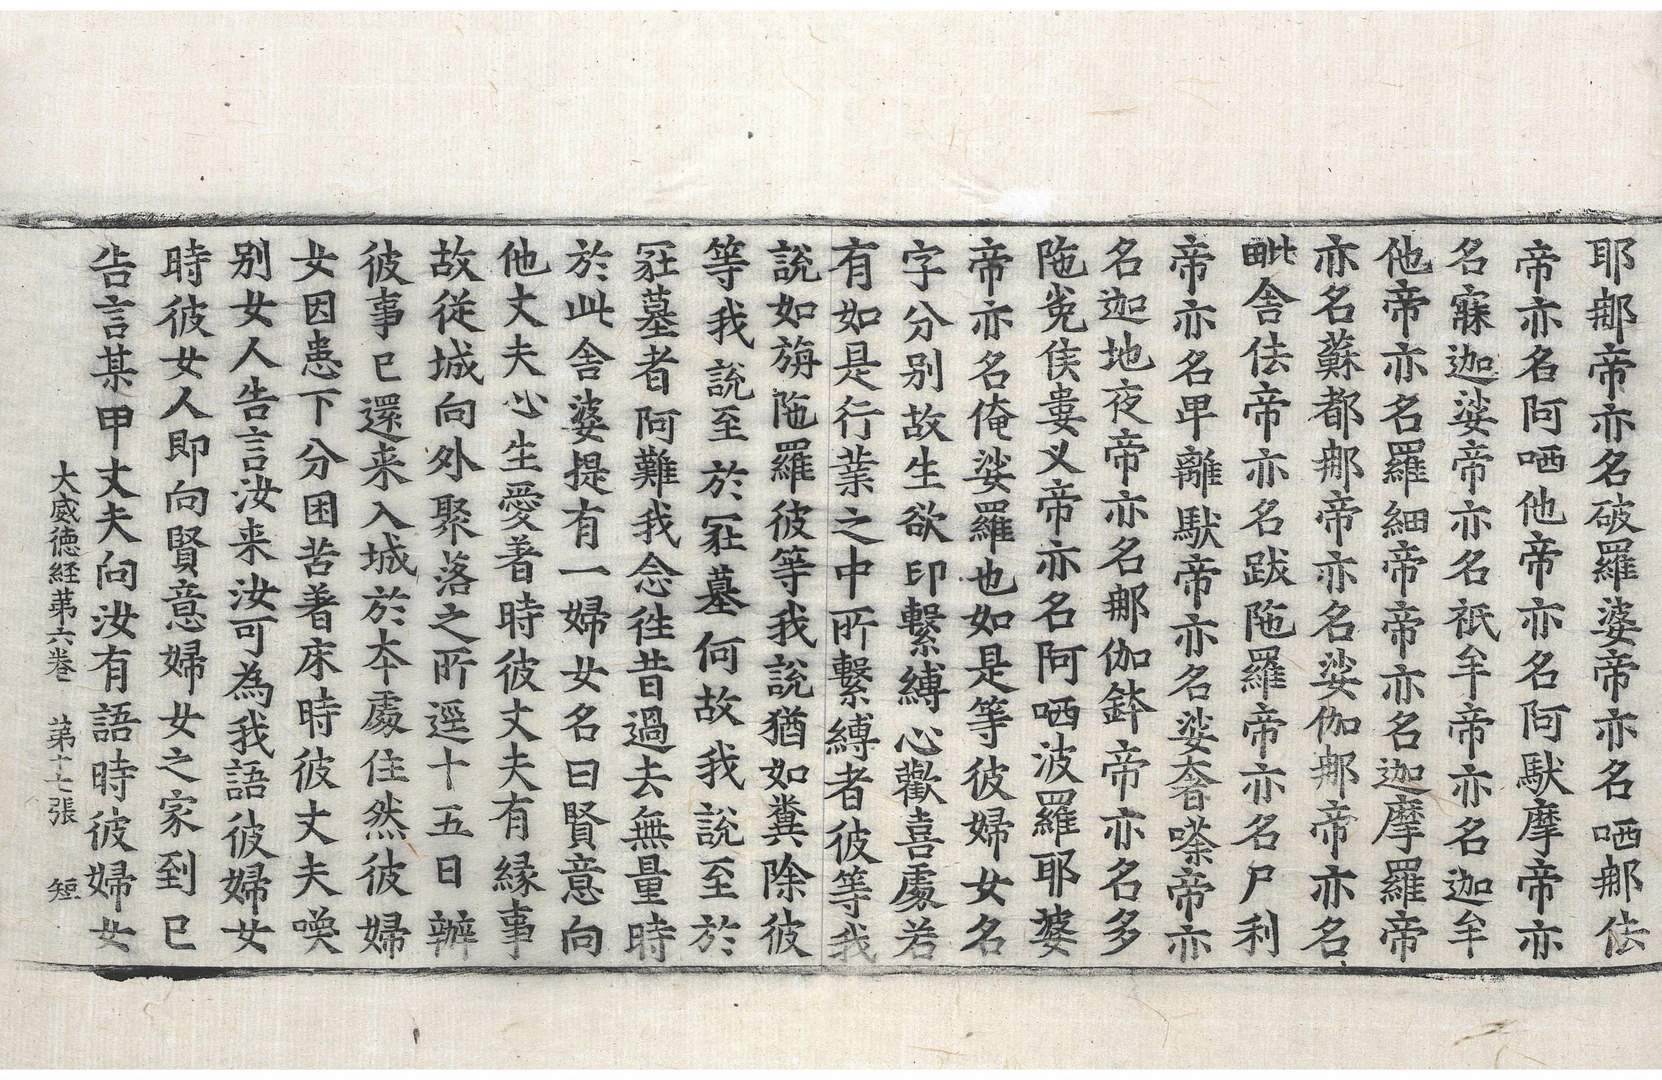 耶郍帝亦名破羅婆帝亦名哂郍佉
帝亦名阿哂他帝亦名阿馱摩帝亦
名寐迦娑帝亦名祇牟帝亦名迦牟
他帝亦名羅細帝帝亦名迦摩羅帝
亦名蘇都郍帝亦名娑伽郍帝亦名
毗舍佉帝亦名跋陁羅帝亦名尸利
帝亦名畀離馱帝亦名娑奢嗏帝亦
名迦地夜帝亦名郍伽鉢帝亦名多
陁㝹侯婁叉帝亦名阿哂波羅耶婆
帝亦名俺娑羅也如是等彼婦女名
字分别故生欲印繫縛心歡喜處若
有如是行業之中所繫縛者彼等我
說如旃陁羅彼等我說猶如糞除彼
等我說至於冢墓何故我說至於
冢墓者阿難我念徃昔過去無量時
於此舍婆提有一婦女名曰賢意向
他丈夫心生愛著時彼丈夫有緣事
故從城向外聚落之所逕十五日辦
彼事已還来入城於本處住然彼婦
女因患下分困苦著床時彼丈夫喚
别女人告言汝来汝可為我語彼婦女
時彼女人即向賢意婦女之家到已
告言某甲丈夫向汝有語時彼婦女
大威徳経第六卷 第十七張 短